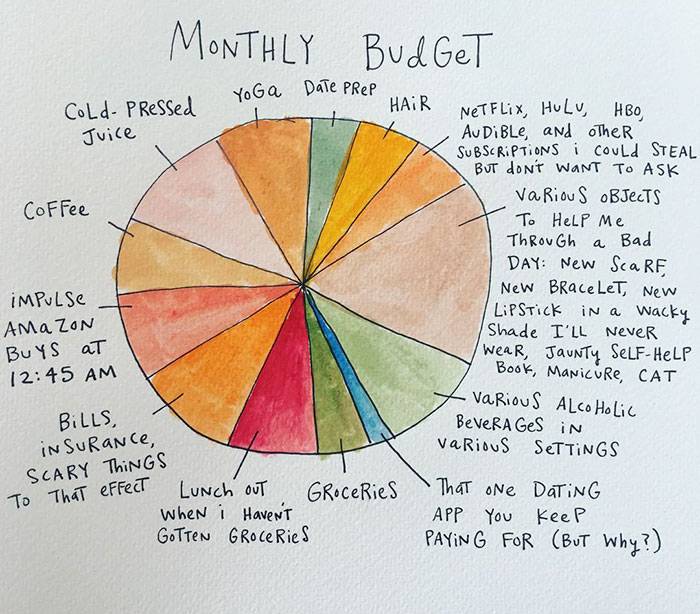 MONTHLY BUDGET
COLD-PRESSED
JUICE
YOGA
DATE PREP
HAIR
NETFLIX, HULU, HBO,
AUDIBLE, AND OTHER
SUBSCRIPTIONS I COULD STEAL
BUT DON'T WANT TO ASK
VARIOUS OBJECTS
TO HELP ME
THROUGH A BAD
DAY: NEW SCARF,
NEW BRACELET, NEW
LIPSTICK IN A WACKY
SHADE I'LL NEVER
WEAR, JAUNTY SELF-HELP
BOOK, MANICURE, CAT
VARIOUS ALCOHOLIC
BEVERAGES IN
VARIOUS SETTINGS
THAT ONE DATING
APP YOU KEEP
PAYING FOR (BUT WHY?)
GROCERIES
LUNCH OUT
WHEN I HAVEN'T
GOTTEN GROCERIES
BILLS,
INSURANCE,
SCARY THINGS
TO THAT EFFECT
IMPULSE
AMAZON
BUYS AT
12:45 AM
COFFEE